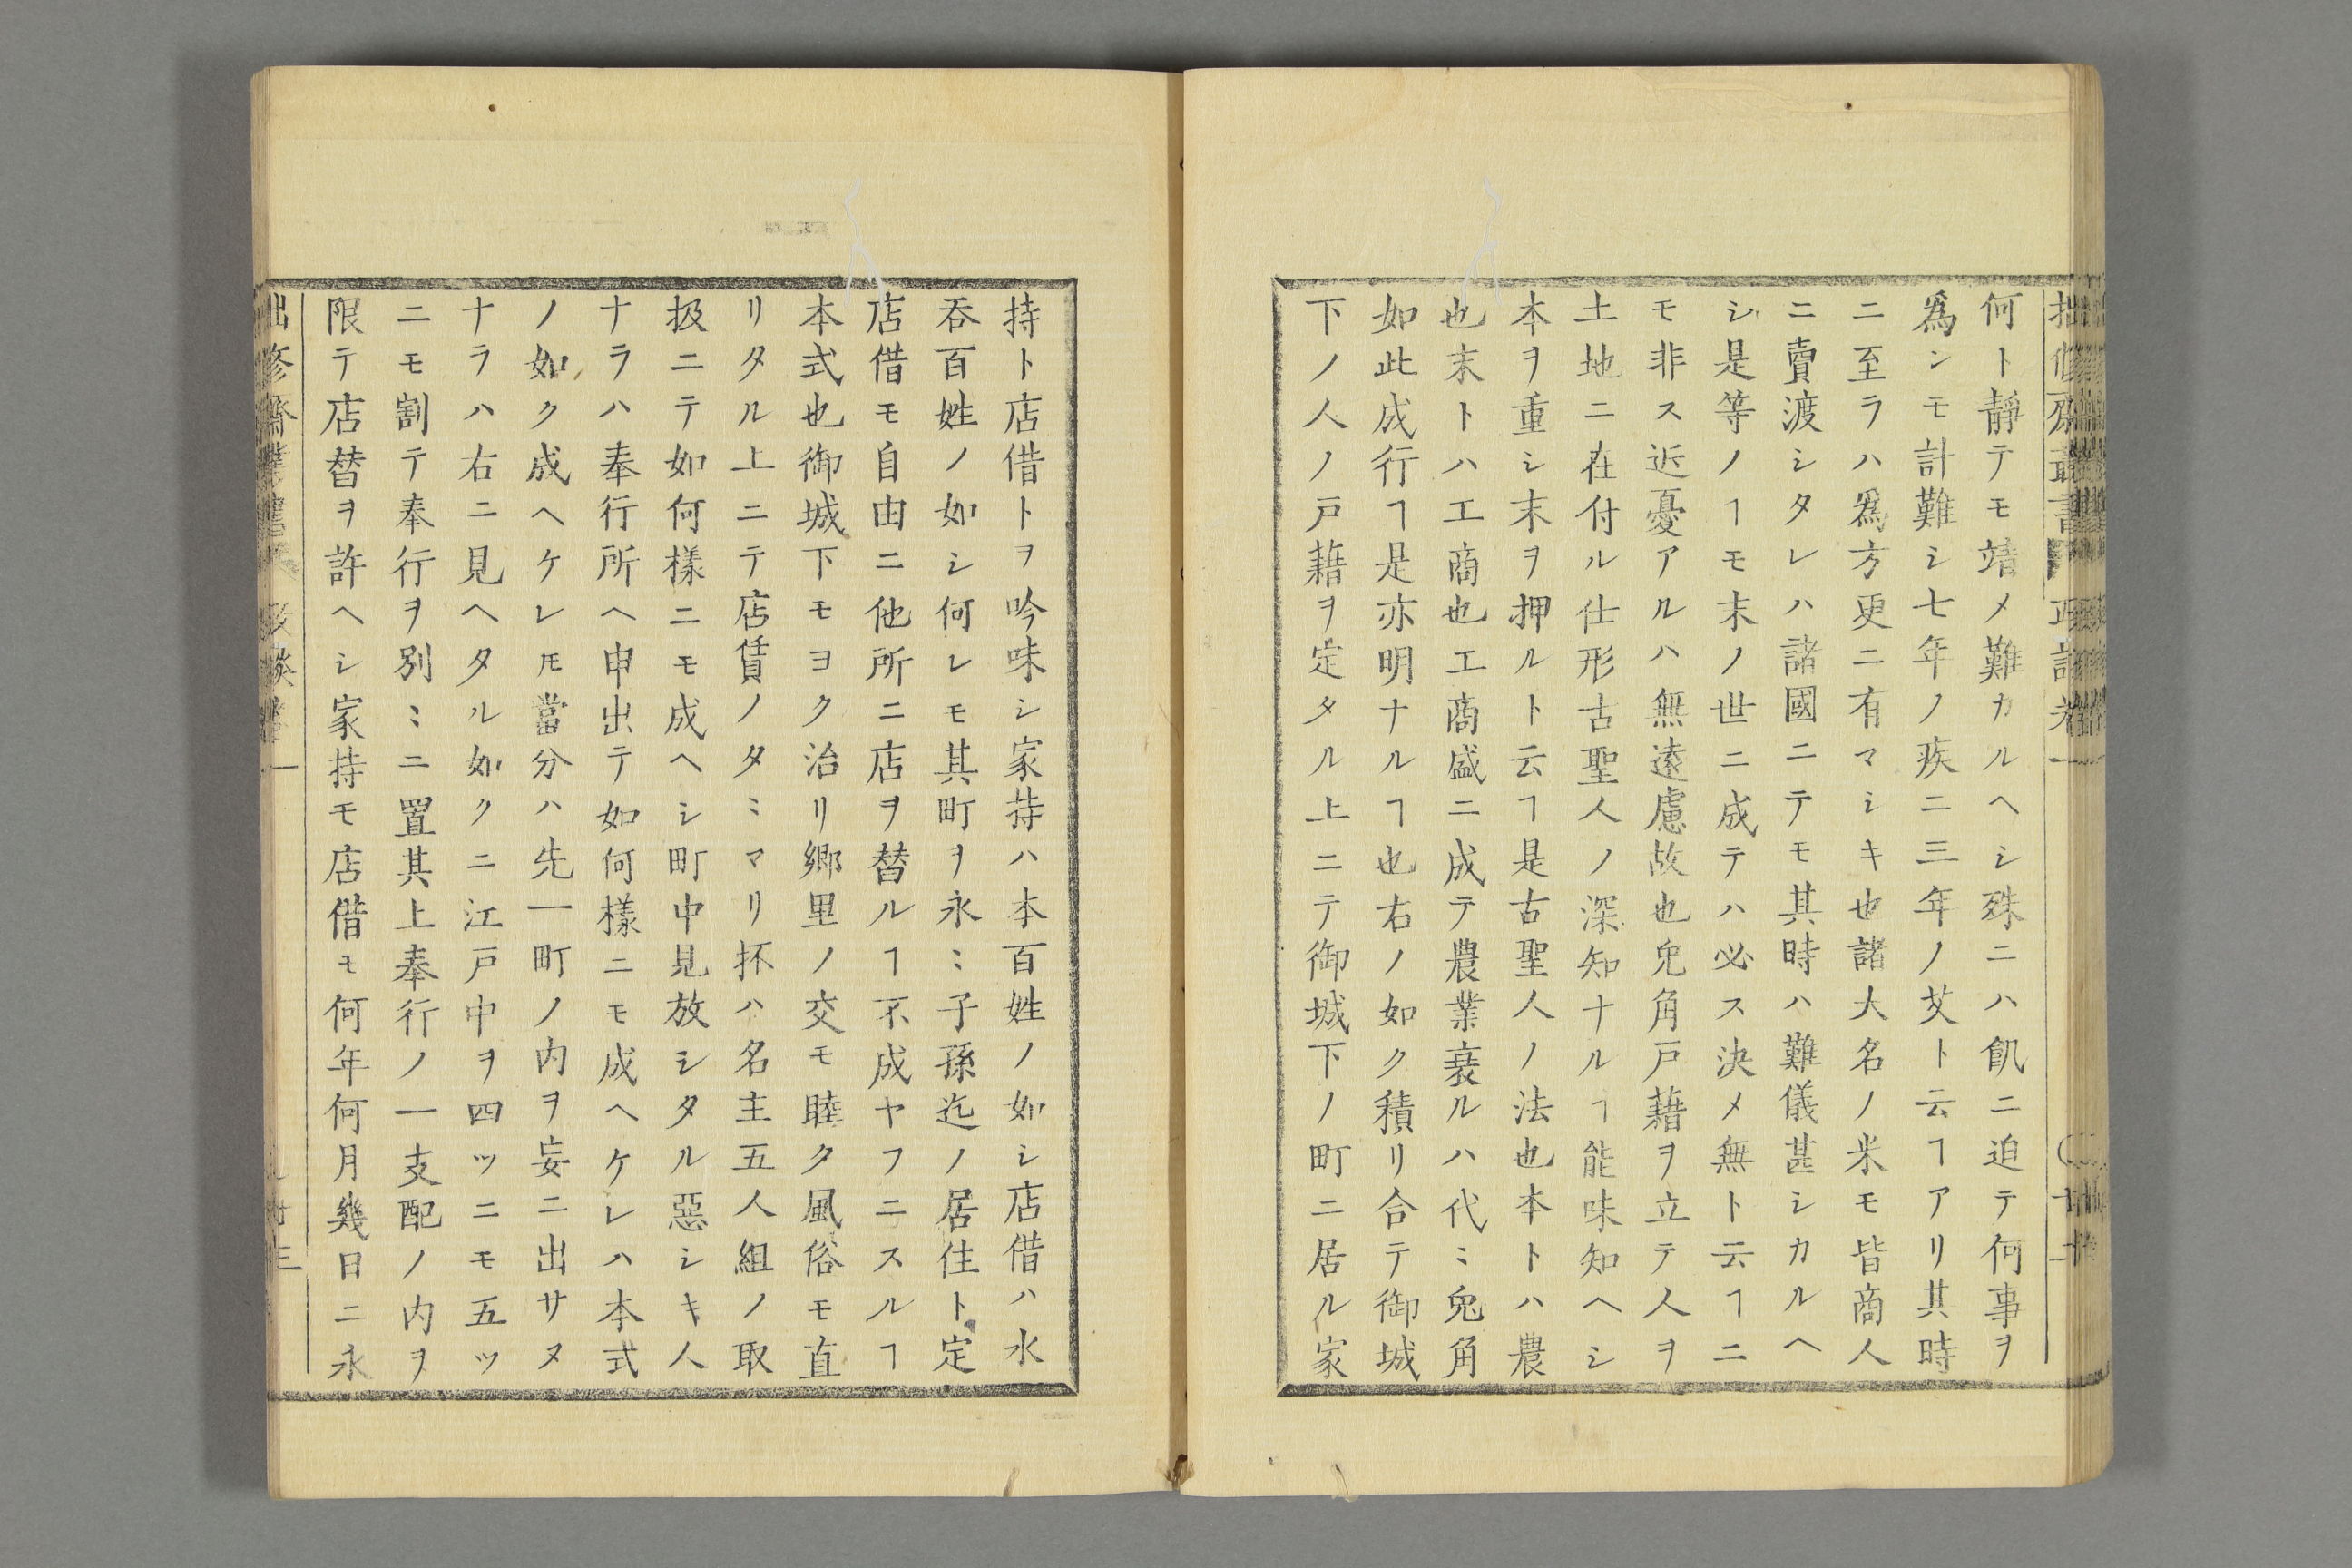 何ト靜テモ靖メ難カルヘシ殊ニハ飢ニ迫テ何事ヲ
爲ンモ計難シ七年ノ疾ニ三年ノ艾ト云ヿアリ其時
ニ至ラハ爲方更ニ有マシキ也諸大名ノ米モ皆商人
ニ賣渡シタレハ諸國ニテモ其時ハ難儀甚シカルヘ
シ是等ノヿモ末ノ世ニ成テハ必ス決メ無ト云ヿニ
モ非ス近憂アルハ無遠慮故也兎角戸藉ヲ立テ人ヲ
土地ニ在付ル仕形古聖人ノ深知ナルヿ能味知ヘシ
本ヲ重シ末ヲ押ルト云ヿ是古聖人ノ法也本トハ農
也末トハ工商也工商盛ニ成テ農業衰ルハ代ミ兎角
如此成行ヿ是亦明ナルヿ也右ノ如ク積リ合テ御城
下ノ人ノ戸藉ヲ定タル上ニテ御城下ノ町ニ居ル家
持ト店借トヲ吟味シ家持ハ本百姓ノ如シ店借ハ水
呑百姓ノ如シ何レモ其町ヲ永ミ子孫迄ノ居住ト定
店借モ自由ニ他所ニ店ヲ替ルヿ不成ヤフニスルヿ
本式也御城下モヨク治リ郷里ノ交モ睦ク風俗モ直
リタル上ニテ店賃ノタミマリ抔ハ名主五人組ノ取
扱ニテ如何樣ニモ成ヘシ町中見放シタル惡シキ人
ナラハ奉行所ヘ申出テ如何樣ニモ成ヘケレハ本式
ノ如ク成ヘケレ𪜈當分ハ先一町ノ内ヲ妄ニ出サヌ
ナラハ右ニ見ヘタル如クニ江戸中ヲ四ツニモ五ツ
ニモ割テ奉行ヲ別ミニ置其上奉行ノ一支配ノ内ヲ
限テ店替ヲ許ヘシ家持モ店借モ何年何月幾日ニ永